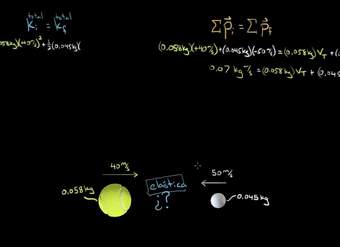 total total
Ki = Kf
0.058kg)(+40 m/s)² + ½(0.045kg)(
Σp⃗i = Σp⃗f
(0.058kg)(+40 m/s)+(0.045kg)(-50 m/s)=(0.058kg)VT+(0.04
0.07 kg m/s =(0.058kg)VT+(0.045
40 m/s
50 m/s
elástica
¿?
0.058kg
0.045kg